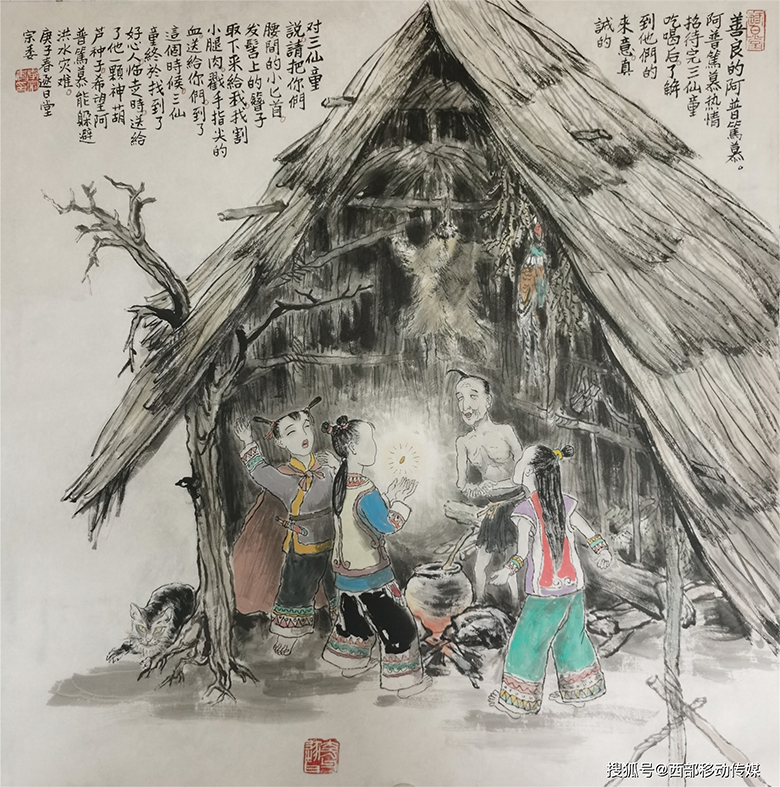 善良的阿普篤慕。
阿普篤慕热情
招待完三仙童
吃喝后了解
到他們的
来意真
誠的
对三仙童
説請把你們
腰間的小匕首。
发髻上的簪子
取下来给我我割
小腿肉戳手指尖的
血送给你們到了
這個時候。三仙
童终於找到了
好心人临走时送给
了他一颗神葫
芦种子希望阿
普篤慕能躲避
洪水灾难。
庚子春逸日堂
宗委
搜狐号@西部移动传媒